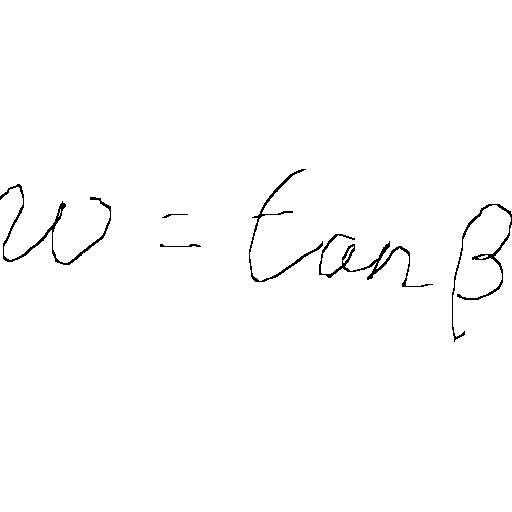 w = tan β